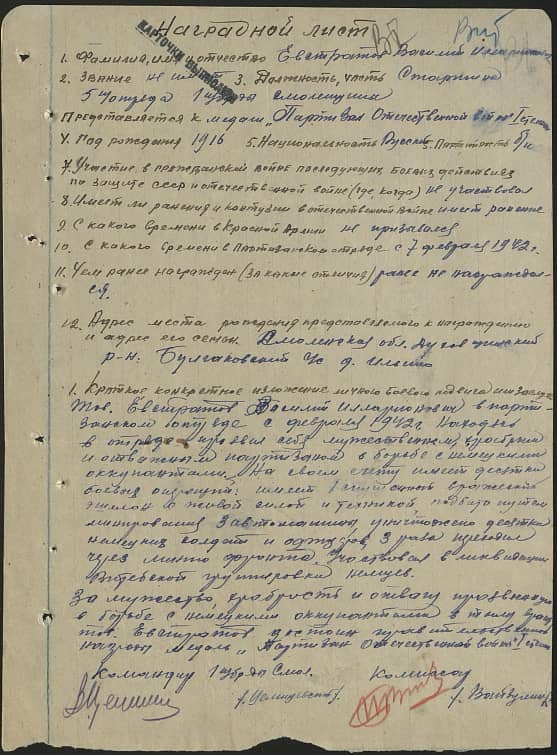 Наградной лист
КАРТОЧКИ ВЫПИСАНЫ
1. Фамилия, имя и отчество Евстратов Василий Илларионович
2. Звание не имеет 3. Должность, часть Старшина
5 отряда 1 бригады Смоленщины
Представляется к медали „Партизан Отечественной войны" I степени
4. Год рождения 1916 5. Национальность Русский 6. Партийность б/п
7. Участие в гражданской войне последующих боевых действиях
по защите СССР и отечественной войне (где, когда) не участвовал
8. Имеет ли ранения и контузии в отечественной войне имеет ранение
9. С какого времени в Красной Армии не призывался
10. С какого времени в Партизанском отряде с 7 февраля 1942 г.
11. Чем ранее награжден (за какие отличия) ранее не награждал-
ся.
12. Адрес места рождения представляемого к награждению
и адрес его семьи Смоленская обл. Духовщинский
р-н. Булгаковский с/с д.
1. Краткое конкретное изложение личного боевого подвига или заслуг
Тов. Евстратов Василий Илларионович в парти-
занском отряде с февраля 1942 г. Находясь
в отряде проявил себя мужественным, храбрым
и отважным партизаном в борьбе с немецкими
оккупантами. На своем счету имеет десятки
боевых операций: имеет 1 вражеский
эшелон с живой силой и техникой, подбито путем
минирования 3 автомашины, уничтожено десятки
немецких солдат и офицеров, 3 раза
через линию фронта. Участвовал в ликвидации
Витебской группировки немцев.
За мужество, храбрость и отвагу проявленную
в борьбе с немецкими оккупантами в тылу врага
тов. Евстратов достоин правительственной
награды медаль „Партизан Отечественной войны" I степени
Командир 1 бригады Смол. Комиссар